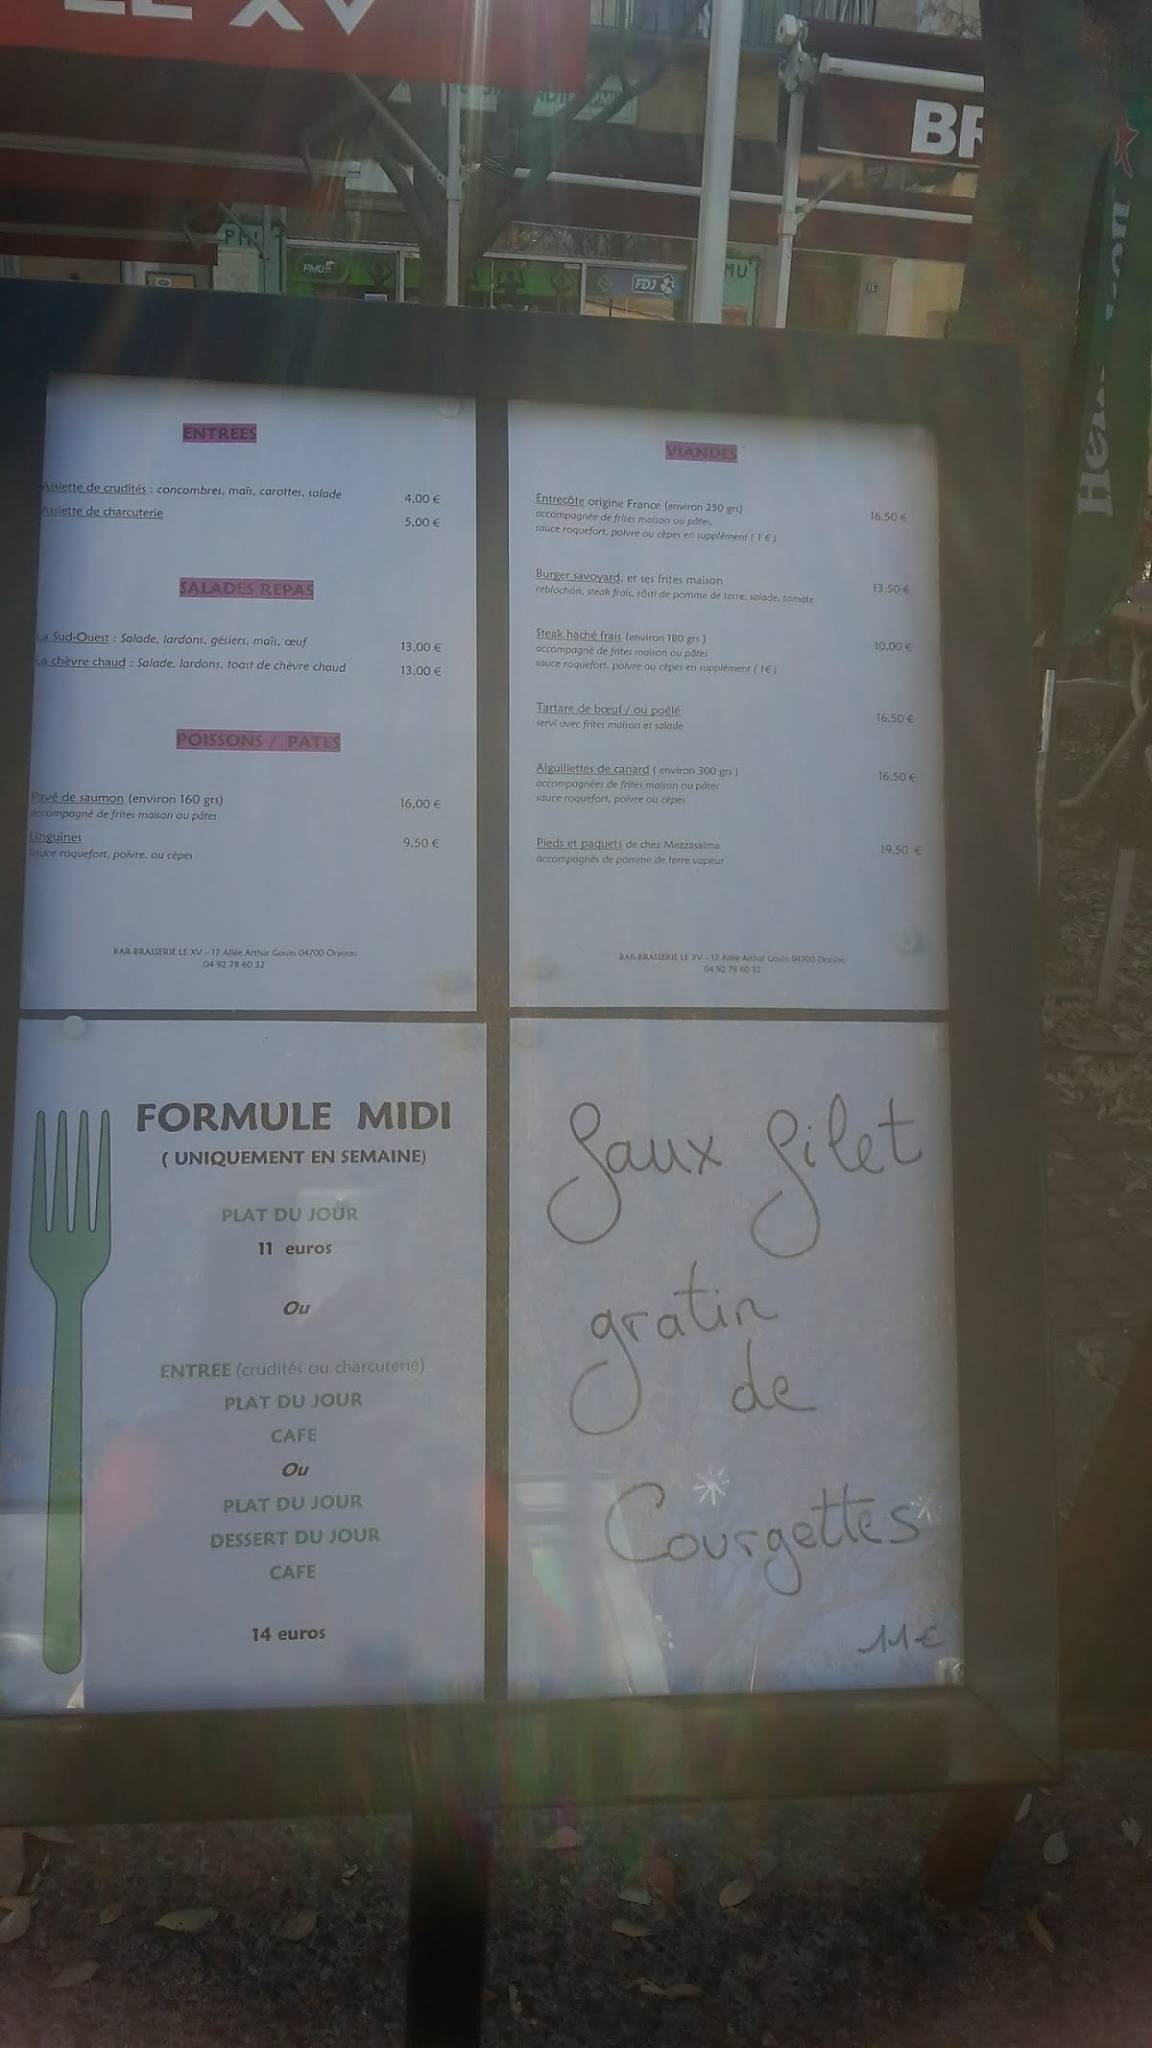 LE XV
BR
PMU
PMU
FDJ
MU
15
Heineken
ENTREES
Assiette de crudités : concombres, maïs, carottes, salade 4,00 €
Assiette de charcuterie 5,00 €
SALADES REPAS
La Sud-Ouest : Salade, lardons, gésiers, maïs, œuf 13,00 €
La chèvre chaud : Salade, lardons, toast de chèvre chaud 13,00 €
POISSONS / PATES
Pavé de saumon (environ 160 grs) 16,00 €
accompagné de frites maison ou pâtes
Linguines 9,50 €
sauce roquefort, poivre, ou cèpes
BAR-BRASSERIE LE XV – 17 Allée Arthur Gouin 04700 Oraison
04 92 78 60 32
VIANDES
Entrecôte origine France (environ 250 grs) 16,50 €
accompagnée de frites maison ou pâtes,
sauce roquefort, poivre ou cèpes en supplément ( 1 €)
Burger savoyard, et ses frites maison 13,50 €
reblochon, steak frais, rösti de pomme de terre, salade, tomate
Steak haché frais (environ 180 grs ) 10,00 €
accompagné de frites maison ou pâtes
sauce roquefort, poivre ou cèpes en supplément ( 1€)
Tartare de bœuf / ou poêlé 16,50 €
servi avec frites maison et salade
Aiguillettes de canard ( environ 300 grs ) 16,50 €
accompagnées de frites maison ou pâtes
sauce roquefort, poivre ou cèpes
Pieds et paquets de chez Mezzasalma 19,50 €
accompagnés de pomme de terre vapeur
BAR-BRASSERIE LE XV – 17 Allée Arthur Gouin 04700 Oraison
04 92 78 60 32
FORMULE MIDI
( UNIQUEMENT EN SEMAINE)
PLAT DU JOUR
11 euros
Ou
ENTREE (crudités ou charcuterie)
PLAT DU JOUR
CAFE
Ou
PLAT DU JOUR
DESSERT DU JOUR
CAFE
14 euros
Faux filet
gratin
de
Courgettes
11€